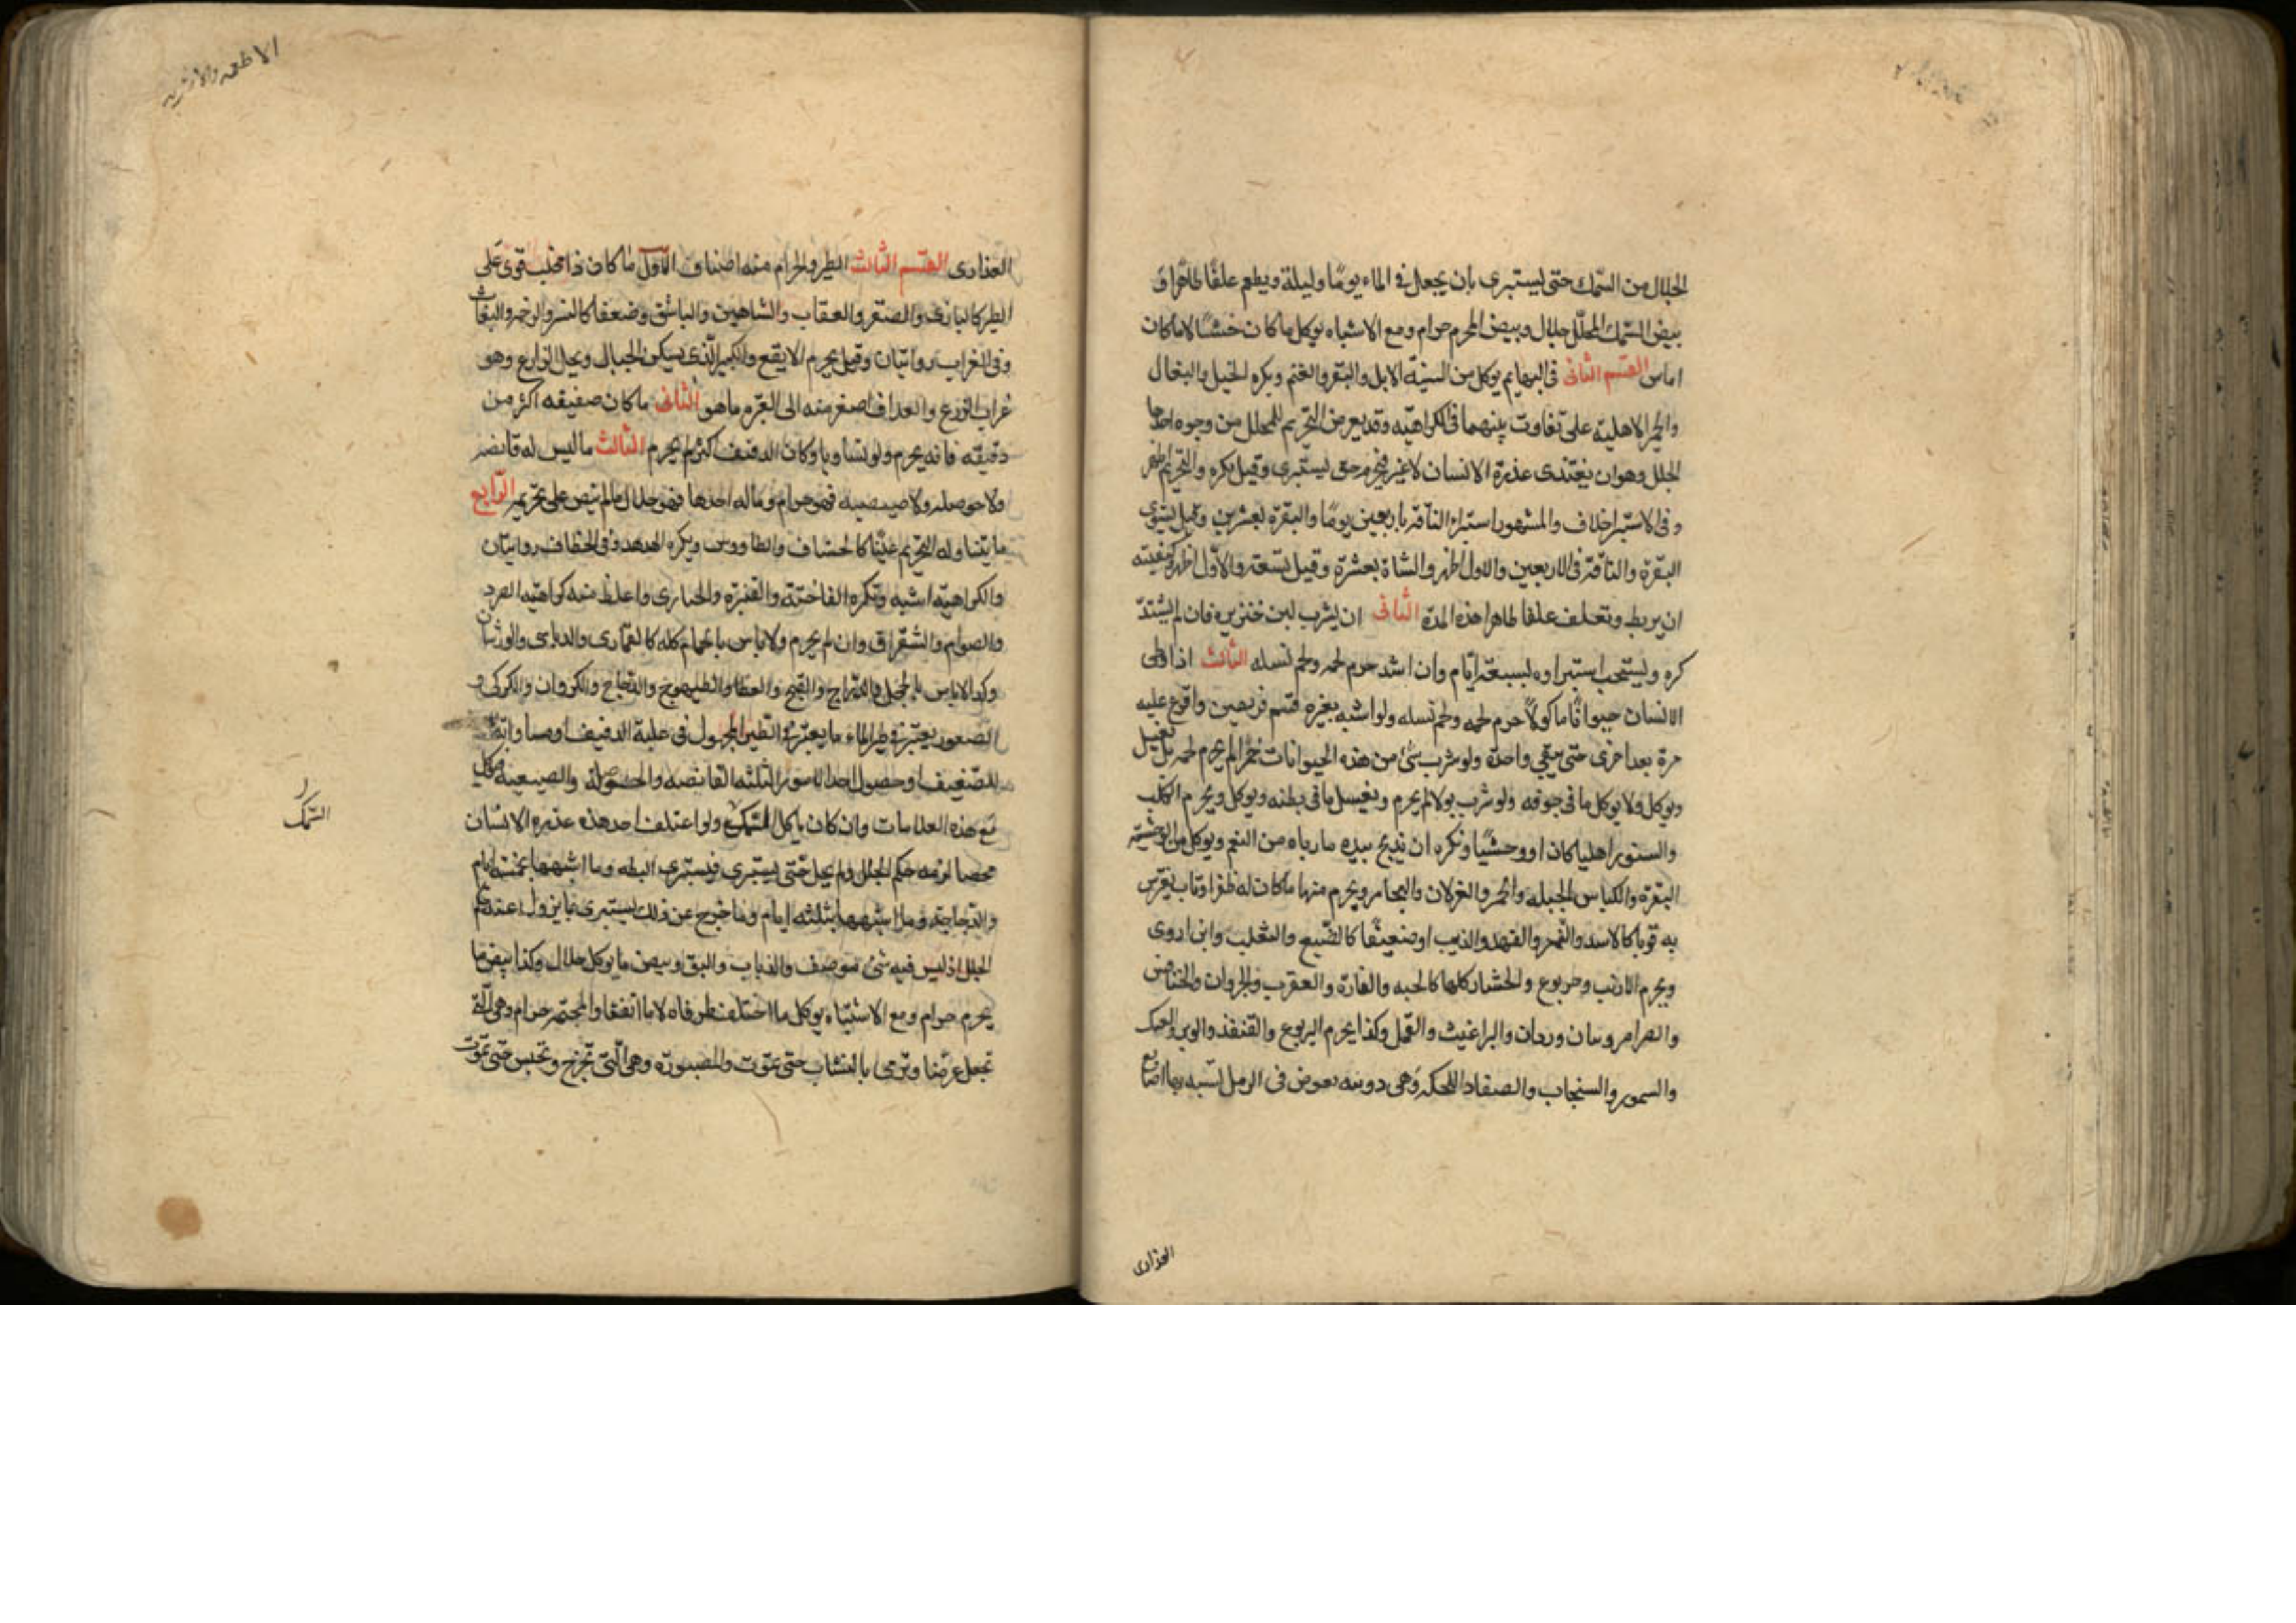 الجلال من السمك حتى يستبرى بان يجعل في الماء يومًا وليلة ويطعم علفًا طاهرًا و
بيض السمك المحلل حلال وبيض المحرم حرام ومع الاشباه يوكل ما كان خشنًا لا ما كان
املس القسم الثانى فى البهايم يوكل من انسيّة الابل والبقر والغنم ويكره الخيل والبغال
والحمر الاهلية على تفاوت بينهما فى الكراهيّه وقد يعرض التحريم للمحلل من وجوه احدها
الجلل وهو ان يغتذى عذرة الانسان لا غير فيحرم حتى يستبرى وقيل يكره والتحريم اظهر
وفى الاستبرا خلاف والمشهور استبرا الناقة باربعين يومًا والبقرة بعشرين وقيل يستوى
البقرة والناقة فى الاربعين والاول اظهر والشاة بعشرة وقيل بسبعة والاوّل اظهر وكيفيته
ان يربط وتعلف علفا طاهرا هذه المدة الثانى ان يشرب لبن خنزيره فان لم يشتدّ
كره ويستحب استبراوه بسبعة ايّام وان اشتد حرم لحمه ولحم نسله الثالث اذا وطى
الانسان حيوانًا ماكولاً حرم لحمه ولحم نسله ولو اشبه بغيره قسم فريقين واقرع عليه
مرة بعد اخرى حتى يبقي واحدة ولو شرب شئ من هذه الحيوانات خمرا لم يحرم لحمه بل يغسل
ويوكل ولا يوكل ما فى جوفه ولو شرب بولا لم يحرم ويغسل ما فى بطنه ويوكل ويحرم الكلب
والسنور اهليا كان او وحشيًا ويكره ان يذبح بيده ما رباه من النعم ويوكل من الوحشيّه
البقرة والكباس الجبليه والحمر والغزلان واليحامير ويحرم منها ما كان له ظفرا وناب يفرس
به قويا كالاسد والنمر والفهد والذيب او ضعيفًا كالضبع والثعلب وابن اوى
ويحرم الارنب و والحشار كلها كالحيه والفارة والعقرب والجرذان والخنافس
والصراصر وبنات وردان والبراغيث والقمل وكذا يحرم اليربوع والقنفذ والوبر
والسمور والسنجاب و اللحكه وهى دويبه تغوص فى الرمل تشبه بها اصابع
العذارى
الاطعمه والاشربه
العذارى القسم الثالث الطير والحرام منه اصناف الاول ما كان ذا مخلب قوى على
الطير كالبازى والصقر والعقاب والشاهين والباشق وضعفا كالنسر والرخمه والبغاث
وفى الغراب روايتان وقيل يحرم الابقع والكبير الذى يسكن الجبال ويحل الزارع وهو
غراب الزرع والغداف اصغر منه الى الغبره ما هو الثانى ما كان صفيفه اكثر من
دفيفه فانه يحرم ولو تساويا وكان الدفيف اكثر لم يحرم الثالث ما ليس له قانصه
ولا حوصله ولا صيصيه فهو حرام وماله احدها فهو حلال ما لم ينص على تحريمه الرابع
ما يتناوله التحريم عينًا كالخشاف والطاووس ويكره الهدهد وفى الخطاف روايتان
والكراهية اشبه وتكره الفاختة والقنبره والحبارى واغلظ منه كراهيّه الصرد
والصوام والشقراق وان لم يحرم ولا باس بالحمام كله كالقمارى والدباسى والورشان
وكذا لا باس بالحجل والدراج والقبج والقطا والطيهوج والدجاج والكروان والكركى و
الصعو ويعتبر فى طير الماء ما يعتبر فى الطير المجهول فى غلبة الدفيف او مساواته
للصفيف او حصول احد الامور الثلثه القانصه والحوصلة والصيصيه فيوكل
مع هذه العلامات وان كان ياكل السمك ولو اعتلف احد هذه عذره الانسان
محضا لزمه حكم الجلل ولم يحل حتى يستبرى فيستبرى البطه وما اشبهها بخمسه ايام
والدجاجة وما اشبهها بثلثه ايام وما خرج عن ذلك يستبرى بما يزول عنه حكم
الجلل اذ ليس فيه شئ موصف والذباب والبق وبيض ما يوكل حلال وكذا بيض ما
يحرم حرام ومع الاشتباه يوكل ما اختلف طرفاه لا ما اتفقا والمجثمه حرام وهى الّتى
تجعل غرضا وترمى بالنشاب حتى تموت والمصبورة وهى التى تجرح وتحبس حتى تموت
السمك